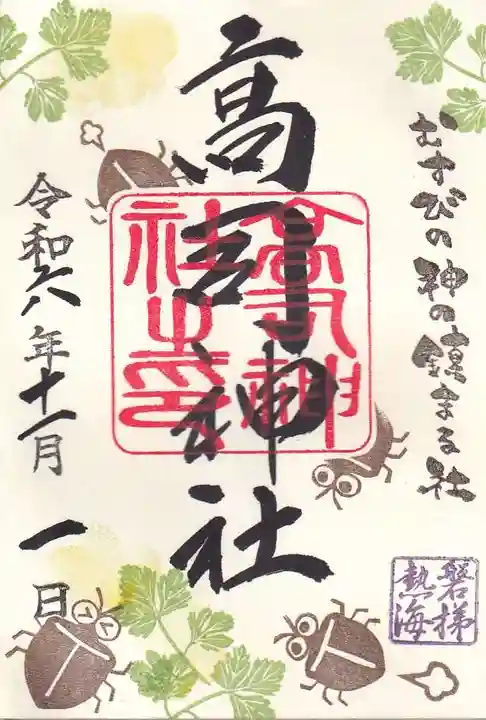 むすびの神の鎮まる社
高司神社
高司神社之印
磐梯熱海
令和六年十一月一日